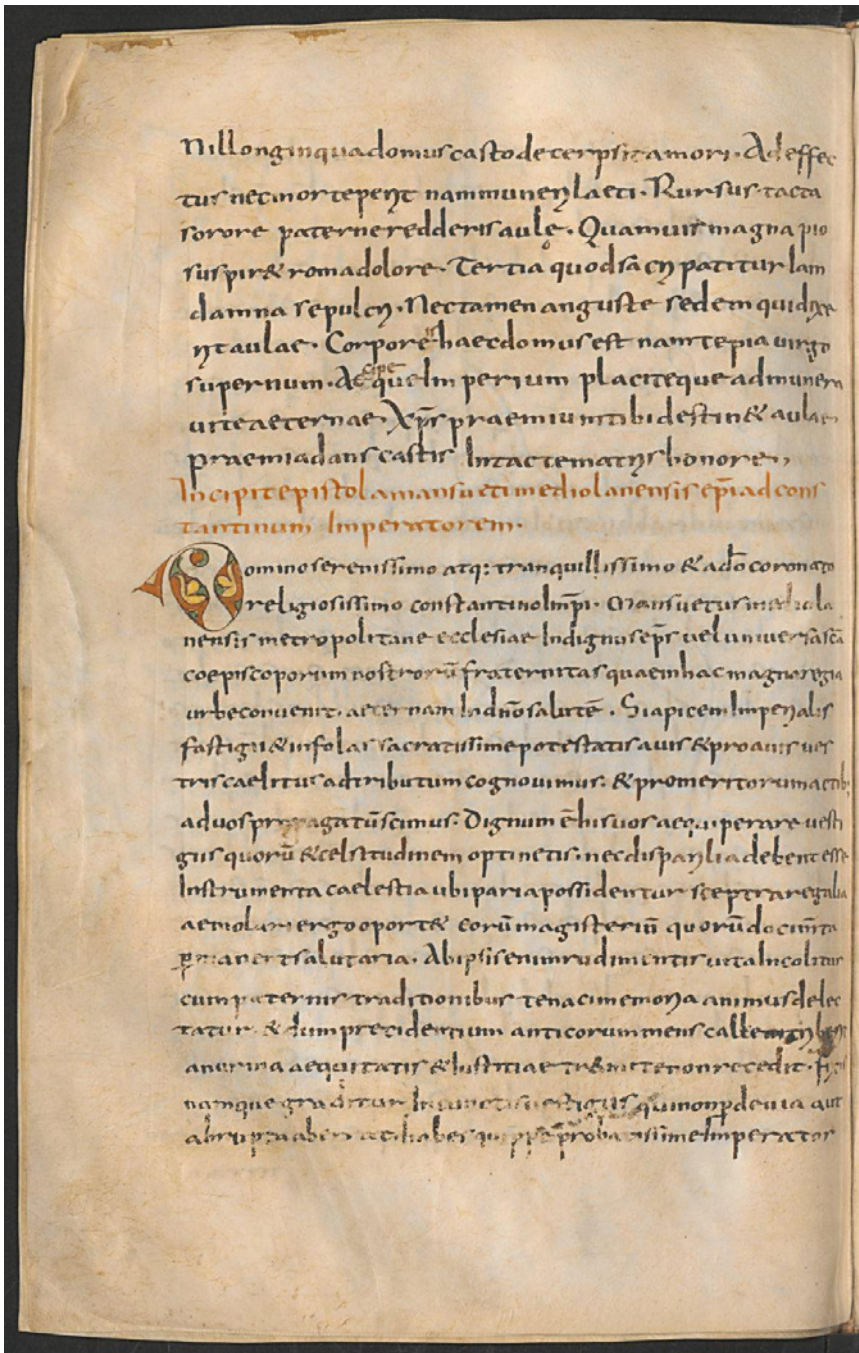 Nil longinqua domus casto decerpsit amori · Ad effec
tus nec morte perit nam muneri laeti · Rursus tacta
sorore paterne redderis aulę · Quamuis magna pio
suspiret roma dolore · Tertia quod sacri patitur iam
damna sepulcri · Nec tamen anguste sedem qui
aulae · Corpore haec domus est nam te pia uirgo
supernum · Accipe quem Imperium placiteque ad munera
uite aeternae · Xp̄s praemium tibi destinet aulae
praemia dans castis Intacte matris honore
Incipit epistola mansueti mediolanensis ep̄i ad cons
tantinum Imperatorem ·
Domino serenissimo atq: tranquillissimo & a dō coronato
religiosissimo constantino Imp̄i · Mansuetus mediola
nensis metropolitane ecclesiae Indignus ep̄s uel uniuersa sc̄a
coepiscoporum nostrorū fraternitas quae In hac magna regia
urbe conuenit · aeternam In dn̄o salutē · Si apicem Imperialis
fastigii & infolas sacratissime potestatis auis & proauis ues
tris caelitus adtributum cognouimus · & pro meritorum actib;
ad uos propagatū scimus · Dignum ē his uos aequiperare uesti
giis quorū & celsitudinem optinetis · nec disparilia debent esse
Instrumenta caelestia ubi paria possidentur sceptra regalia
aemolari ergo oport& eorū magisteriū quorū documta
p̄manent salutaria · Ab ipsis enim rudimentis uita Incolitur
cum paternis traditionibus tenaci memoria animus delec
tatur · & dum precidentium anticorum mens calle
anurma aequitatis & Iustitiae tramite non recedit ·
namque graditur In cunctis uestigiis qui non p̄ deuia aut
abrupta aberrat · habes quippe probatissime Imperator